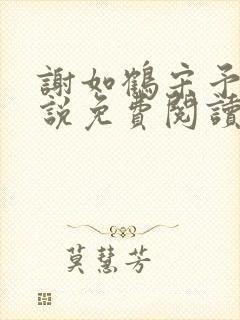 謝如鶴宋予
說免費閱讀
莫慧芳